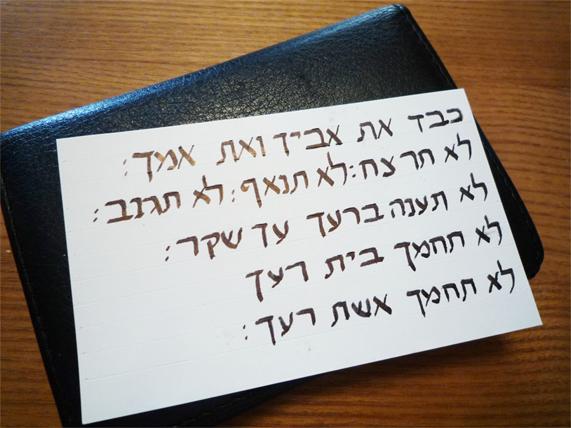 כבד את אביך ואת אמך:
לא תרצח: לא תנאף: לא תגנב:
לא תענה ברעך עד שקר:
לא תחמד בית רעך
לא תחמד אשת רעך: